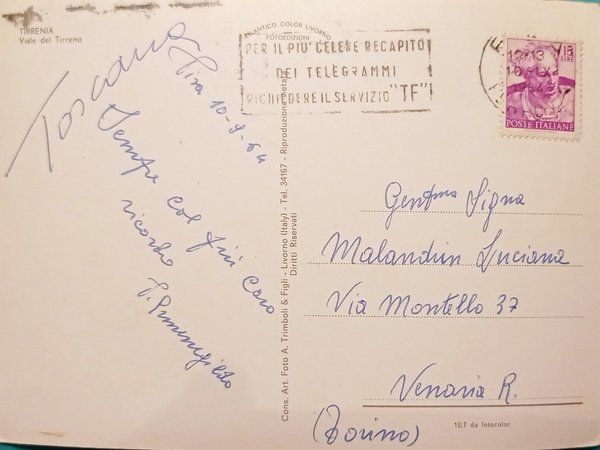 TIRRENIA
Viale del Tirreno
Toscana
Pisa 10-9-64
Sempre col più caro
ricordo
ATLANTICO COLOR LIVORNO
FOTOEDIZIONI
PER IL PIU' CELERE RECAPITO
DEI TELEGRAMMI
RICHIEDERE IL SERVIZIO "TF"
12-13
LIRE
15
POSTE ITALIANE
Cons. Art. Foto A. Trimboli & Figli - Livorno (Italy) - Tel. 34167 - Riproduzione vietata
Diritti Riservati
Gent.ma Sig.na
Malandrin Luciana
Via Montello 37
Venaria R.
(Torino)
12/T da fotocolor